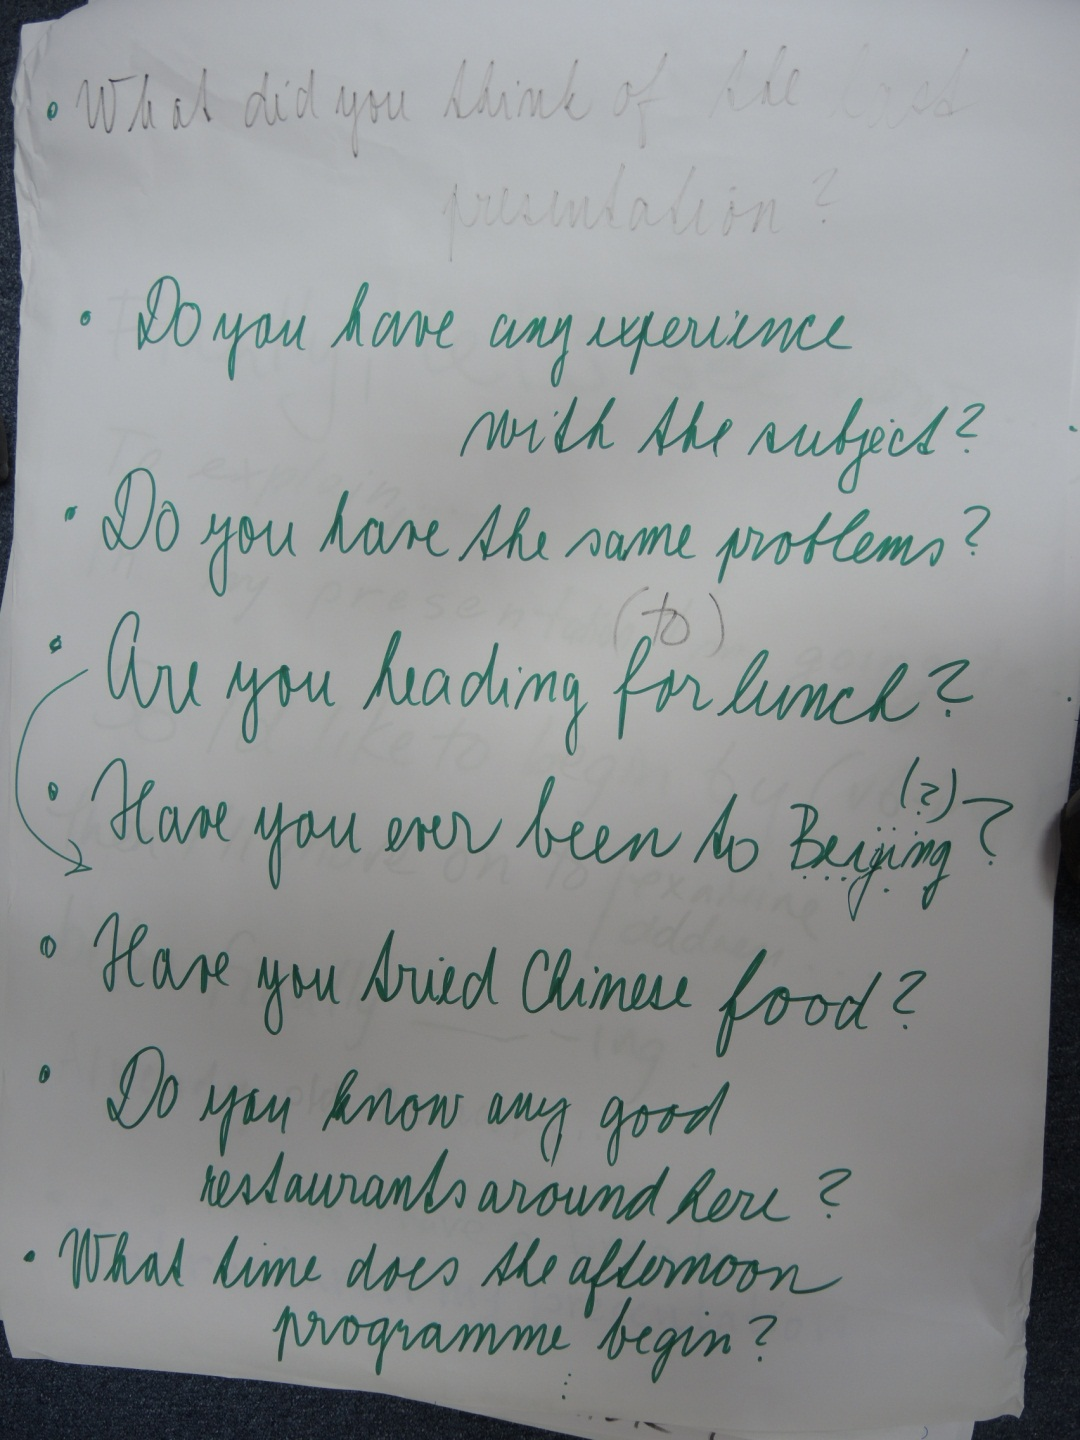 • What did you think of the last
presentation?
• Do you have any experience
with the subject?
• Do you have the same problems?
(to)
• Are you heading for lunch?
(?)
• Have you ever been to Beijing?
• Have you tried Chinese food?
• Do you know any good
restaurants around here?
• What time does the afternoon
programme begin?